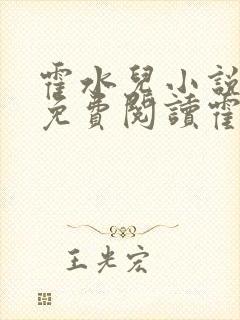 霍水兒小說
免費閱讀霍
王光宏